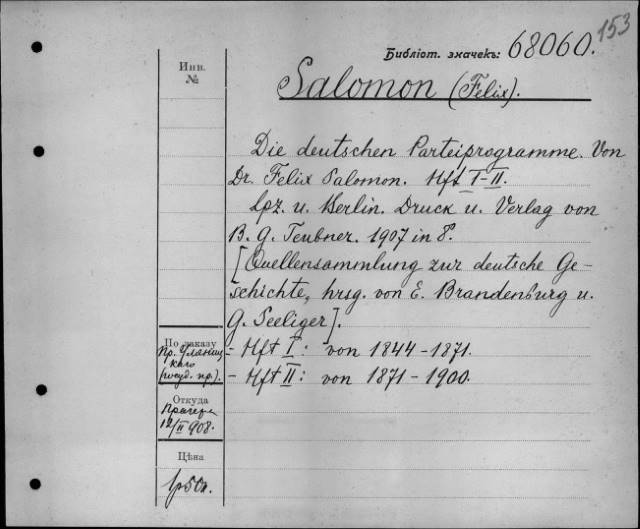 153
Библіот. значекъ: 68060.
Инв.
№
Salomon (Felix).
Die deutschen Parteiprogramme. Von
Dr. Felix Salomon. Hft I-II.
Lpz. u. Berlin. Druck u. Verlag von
B. G. Teubner. 1907 in 8°.
[Quellensammlung zur deutsche Ge-
schichte, hrsg. von E. Brandenburg u.
G. Seeliger].
- Hft I: von 1844-1871.
- Hft II: von 1871-1900.
По заказу
пр. Уляниц-
каго
(госуд. пр.).
Откуда
Прагера
12/II 908.
Цѣна
1р50к.